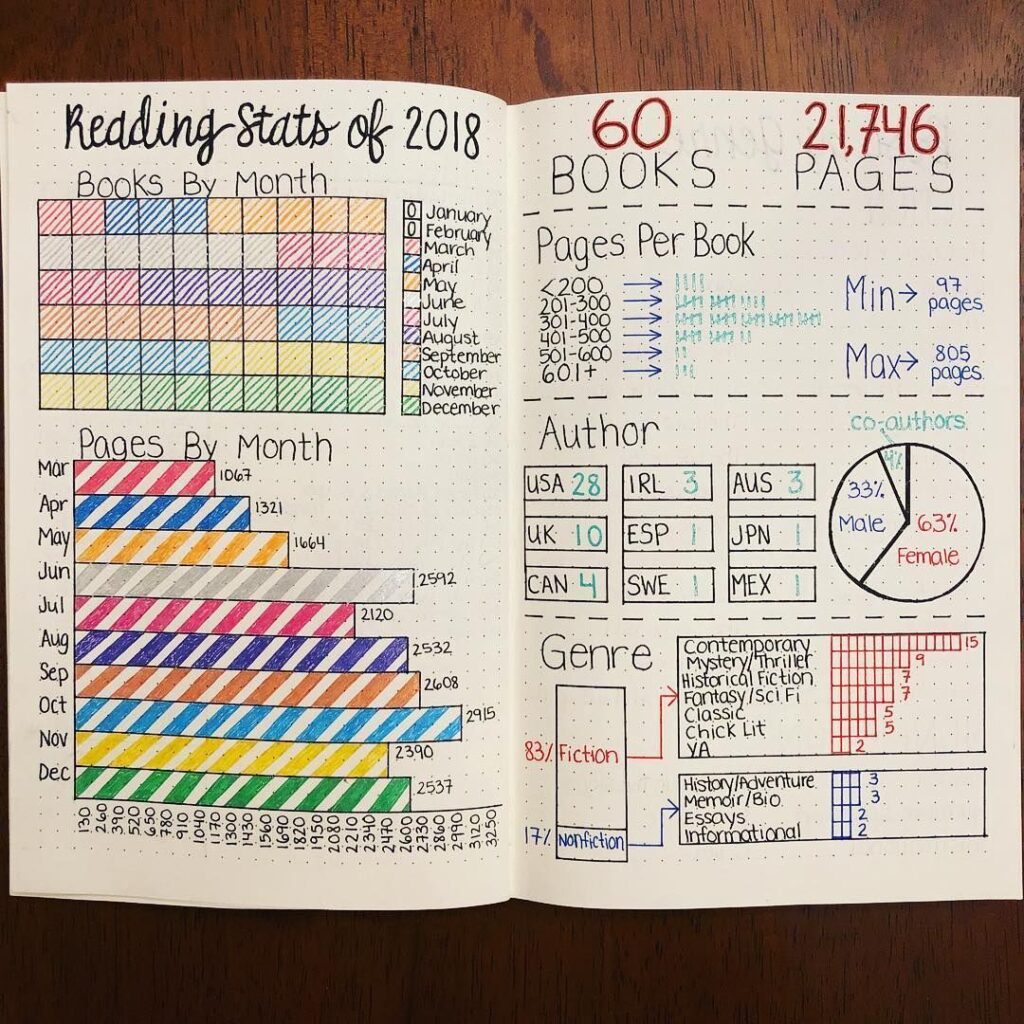 Reading Stats of 2018
Books By Month
0 January
0 February
March
April
May
June
July
August
September
October
November
December
Pages By Month
Mar 1067
Apr 1321
May 1664
Jun 2592
Jul 2120
Aug 2532
Sep 2608
Oct 2915
Nov 2390
Dec 2537
130 260 390 520 650 780 910 1040 1170 1300 1430 1560 1690 1820 1950 2080 2210 2340 2470 2600 2730 2860 2990 3120 3250
60 21,746
BOOKS PAGES
Pages Per Book
<200
201-300
301-400
401-500
501-600
601+
Min → 97 pages
Max → 805 pages
Author
USA 28 IRL 3 AUS 3
UK 10 ESP 1 JPN 1
CAN 4 SWE 1 MEX 1
co-authors
4%
33% Male
63% Female
Genre
83% Fiction
17% Nonfiction
Contemporary 15
Mystery/Thriller 9
Historical Fiction 7
Fantasy/Sci Fi 7
Classic 5
Chick Lit 5
YA 2
History/Adventure 3
Memoir/Bio 3
Essays 2
Informational 2